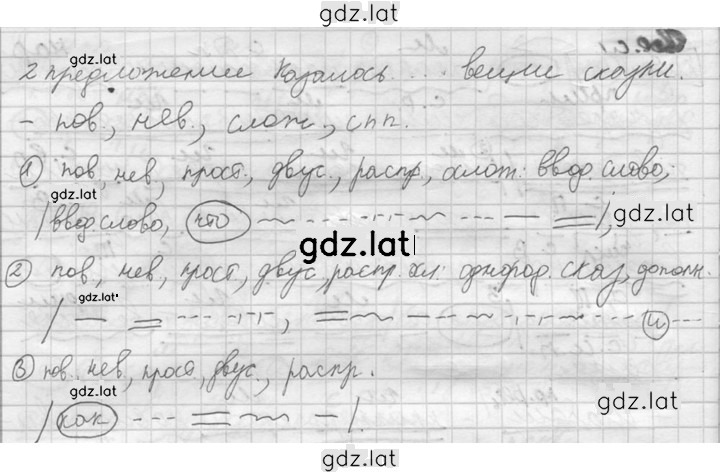 gdz.lat
2 предложение Казалось ... вещи сказки.
- пов., нев., слож., спп.
① пов, нев, прост., двус., распр., ослож. ввод. слово,
gdz.lat
/ввод. слово, что /,
gdz.lat
gdz.lat
② пов, нев, прост, двус, распр. осл. однород. сказ, дополн.
gdz.lat
/ , и
③ пов. нев, прост, двус., распр.
gdz.lat
/ как /.
gdz.lat
gdz.lat